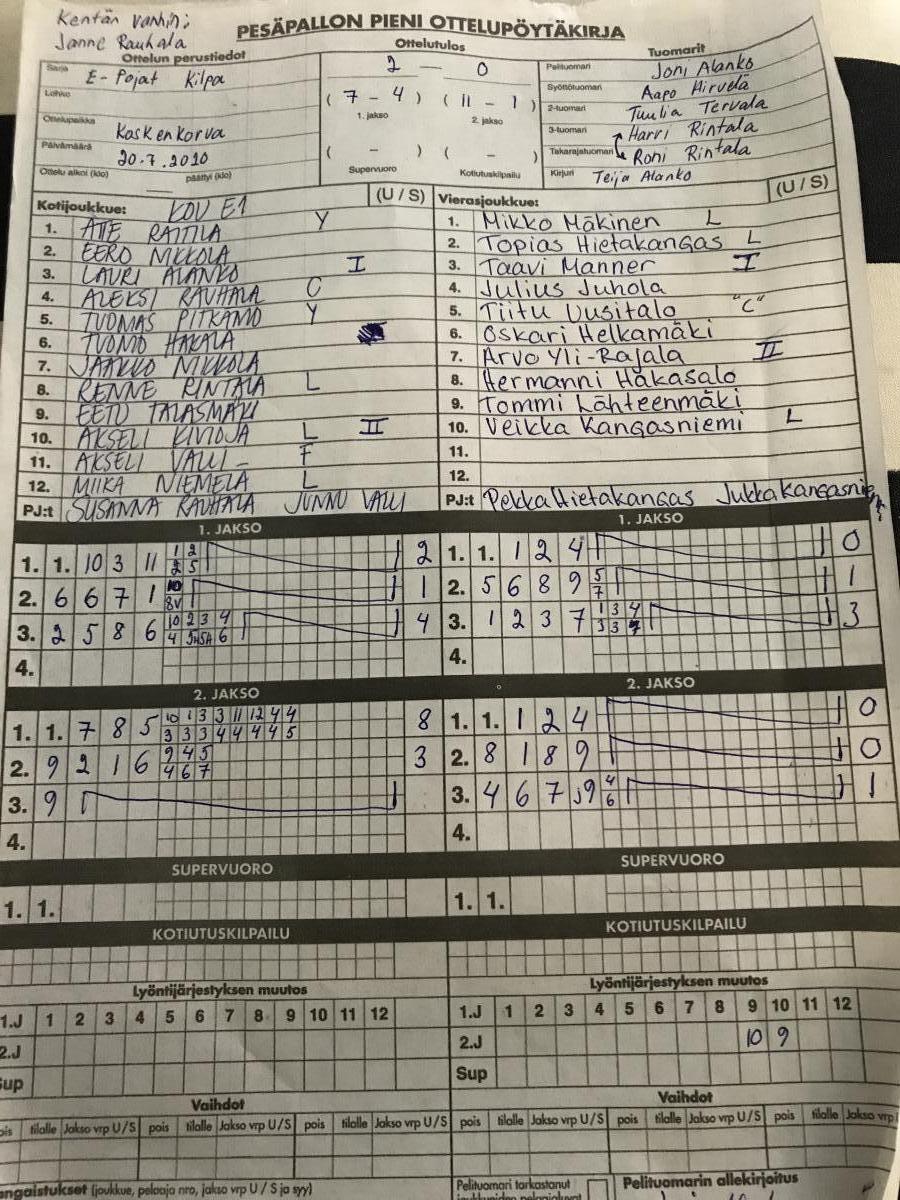 Kentän vanhin:
Janne Rauhala
PESÄPALLON PIENI OTTELUPÖYTÄKIRJA
Ottelun perustiedot
Sarja E-Pojat Kilpa
Lohko
Ottelupaikka Koskenkorva
Päivämäärä 20.7.2020
Ottelu alkoi (klo) — päättyi (klo)
Ottelutulos
2 — 0
( 7 - 4 ) ( 11 - 1 )
1. jakso 2. jakso
( - ) ( - )
Supervuoro Kotiutuskilpailu
Tuomarit
Pelituomari Joni Alanko
Syöttötuomari Aapo Hirvelä
2-tuomari Tuulia Tervala
3-tuomari Harri Rintala
Takarajatuomari Roni Rintala
Kirjuri Teija Alanko
Kotijoukkue: KOU E1 (U / S)
1. ATE RAITILA Y
2. EERO NIKKOLA
3. LAURI ALANKO I
4. ALEKSI RAUHALA C
5. TUOMAS PITKÄMÖ Y
6. TUOMO HAKALA
7. JAAKKO NIKKOLA
8. RENNE RINTALA L
9. EETU TALASMÄKI
10. AKSELI KIVIOJA L II
11. AKSELI VALLI F
12. MIIKA NIEMELÄ L
PJ:t SUSANNA RAUHALA JUNNU VALLI
Vierasjoukkue: (U / S)
1. Mikko Mäkinen L
2. Topias Hietakangas L
3. Taavi Manner I
4. Julius Juhola
5. Tiitu Uusitalo "C"
6. Oskari Helkamäki
7. Arvo Yli-Rajala II
8. Hermanni Hakasalo
9. Tommi Lähteenmäki
10. Veikka Kangasniemi L
11.
12.
PJ:t Pekka Hietakangas Jukka Kangasniemi
1. JAKSO
1. 1. 10 3 11 1 2 2
2 5
2. 6 6 7 1 10 1
8V
3. 2 5 8 6 10 2 3 4 4
4 5A 5A 6
4.
1. JAKSO
1. 1. 1 2 4 0
2. 5 6 8 9 5 1
7
3. 1 2 3 7 1 3 4 3
3 3 7
4.
2. JAKSO
1. 1. 7 8 5 10 1 3 3 11 12 4 4 8
3 3 3 4 4 4 4 5
2. 9 2 1 6 9 4 5 3
4 6 7
3. 9
4.
2. JAKSO
1. 1. 1 2 4 0
2. 8 1 8 9 0
3. 4 6 7 9 4 1
6
4.
SUPERVUORO
1. 1.
SUPERVUORO
1. 1.
KOTIUTUSKILPAILU
KOTIUTUSKILPAILU
Lyöntijärjestyksen muutos
1.J 1 2 3 4 5 6 7 8 9 10 11 12
2.J
Sup
Lyöntijärjestyksen muutos
1.J 1 2 3 4 5 6 7 8 9 10 11 12
2.J 10 9
Sup
Vaihdot
pois tilalle Jakso vrp U/S pois tilalle Jakso vrp U/S pois tilalle Jakso vrp U/S
Vaihdot
pois tilalle Jakso vrp U/S pois tilalle Jakso vrp U/S pois tilalle Jakso vrp
ngaistukset (joukkue, pelaaja nro, jakso vrp U / S ja syy)
Pelituomari tarkastanut
joukkueiden pelaajaluvat
Pelituomarin allekirjoitus